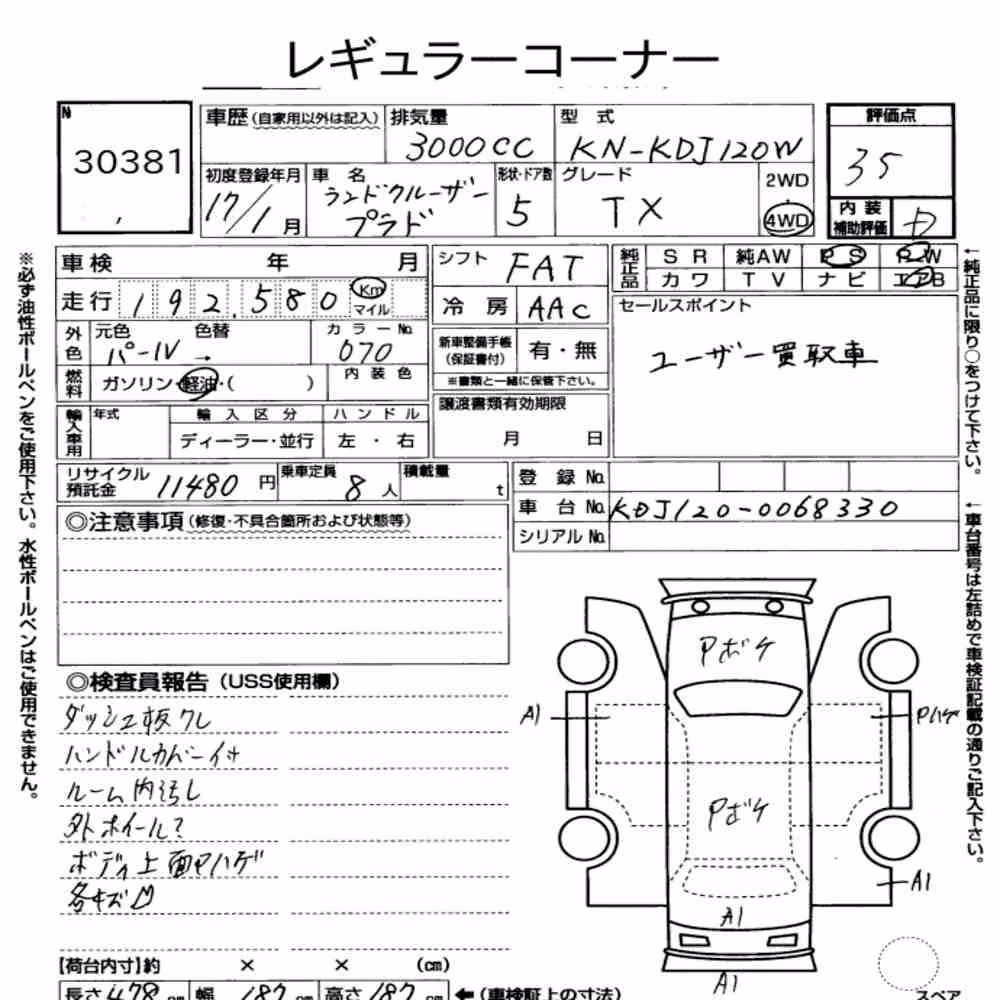 レギュラーコーナー
N
30381
車歴(自家用以外は記入)
排気量
3000CC
型 式
KN-KDJ120W
評価点
35
初度登録年月
17/1月
車 名
ランドクルーザー
プラド
形状・ドア数
5
グレード
TX
2WD
4WD
内装
補助評価
D
車検 年 月
走行 192,580 Km
マイル
シフト FAT
冷房 AAC
純正品
SR 純AW PS PW
カワ TV ナビ エアB
セールスポイント
ユーザー買取車
外色
元色 色替
パール →
カラーNo.
070
内装色
燃料
ガソリン・軽油・( )
新車整備手帳
(保証書付)
有・無
※書類と一緒に保管下さい。
輸入車用
年式
輸入区分
ディーラー・並行
ハンドル
左・右
譲渡書類有効期限
月 日
リサイクル
預託金 11480円
乗車定員
8人
積載量
t
登録No.
車台No. KDJ120-0068330
シリアルNo.
◎注意事項(修復・不具合箇所および状態等)
◎検査員報告(USS使用欄)
ダッシュ板ワレ
ハンドルカバー付
ルーム内汚し
外ホイール?
ボディ上面Pハゲ
各キズ凹
Pボケ
A1
Pハゲ
Pボケ
A1
A1
A1
【荷台内寸】約 × × (cm)
長さ478cm 幅187cm 高さ187cm ←(車検証上の寸法)
スペア
※必ず油性ボールペンをご使用下さい。水性ボールペンはご使用できません。
←純正品に限り○をつけて下さい。
←車台番号は左詰めで車検証記載の通りご記入下さい。